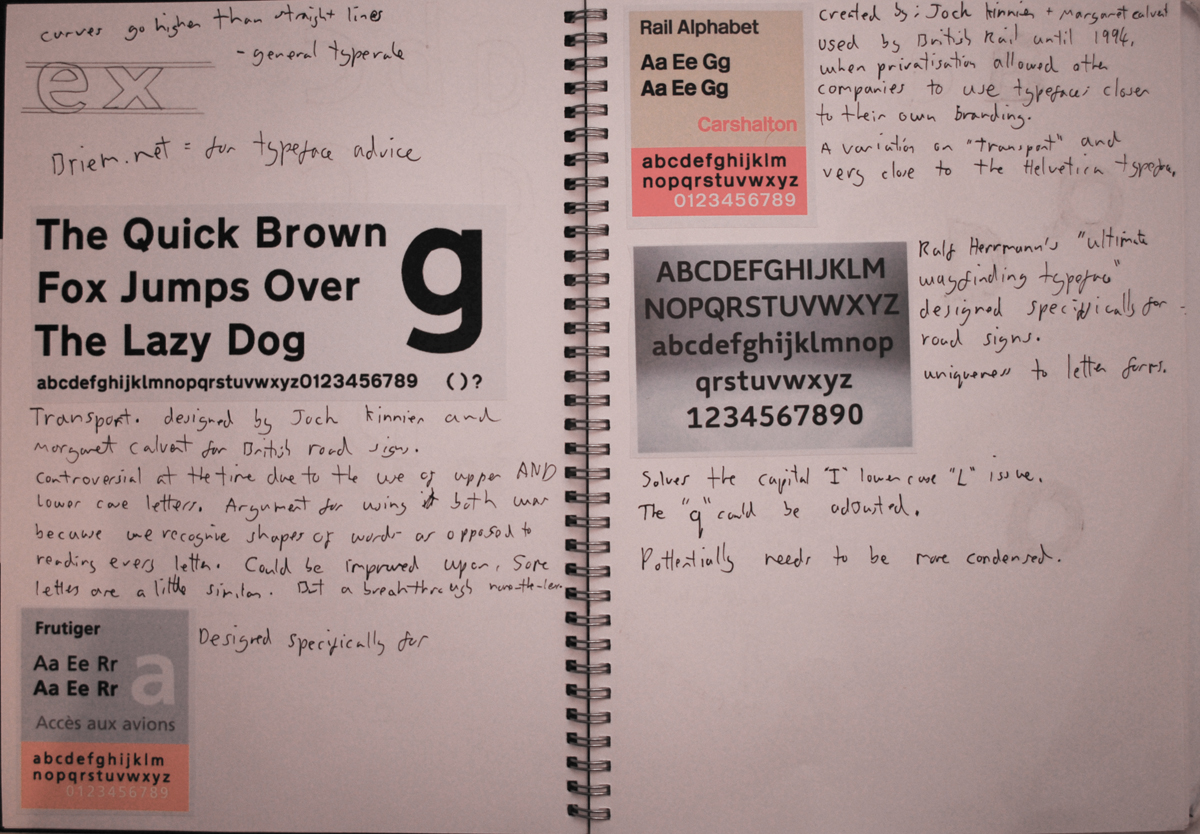 curves go higher than straight lines
- general type rule
ex
Briem.net = for typeface advice
The Quick Brown
Fox Jumps Over
The Lazy Dog
g
abcdefghijklmnopqrstuvwxyz0123456789 ()?
Transport. designed by Joch kinnier and
Margaret calvert for British road signs.
Controversial at the time due to the use of upper AND
lower case letters. Argument for using it both was
because we recognise shapes of words as opposed to
reading every letter. Could be improved upon, Some
letters are a little similar. But a breakthrough none-the-less
Frutiger
Aa Ee Rr
Aa Ee Rr
a
Accès aux avions
abcdefghijklm
nopqrstuvwxyz
0123456789
Designed specifically for
Rail Alphabet
Aa Ee Gg
Aa Ee Gg
Carshalton
abcdefghijklm
nopqrstuvwxyz
0123456789
created by: Joch kinnier + Margaret calvert
used by British Rail until 1994,
when privatisation allowed other
companies to use typefaces closer
to their own branding.
A variation on "transport" and
very close to the Helvetica typeface.
ABCDEFGHIJKLM
NOPQRSTUVWXYZ
abcdefghijklmnop
qrstuvwxyz
1234567890
Ralf Herrmann's "ultimate
wayfinding typeface"
designed specifically for
road signs.
uniqueness to letter forms.
Solves the capital "I" lower case "L" issue.
The "q" could be adjusted.
Pottentially needs to be more condensed.